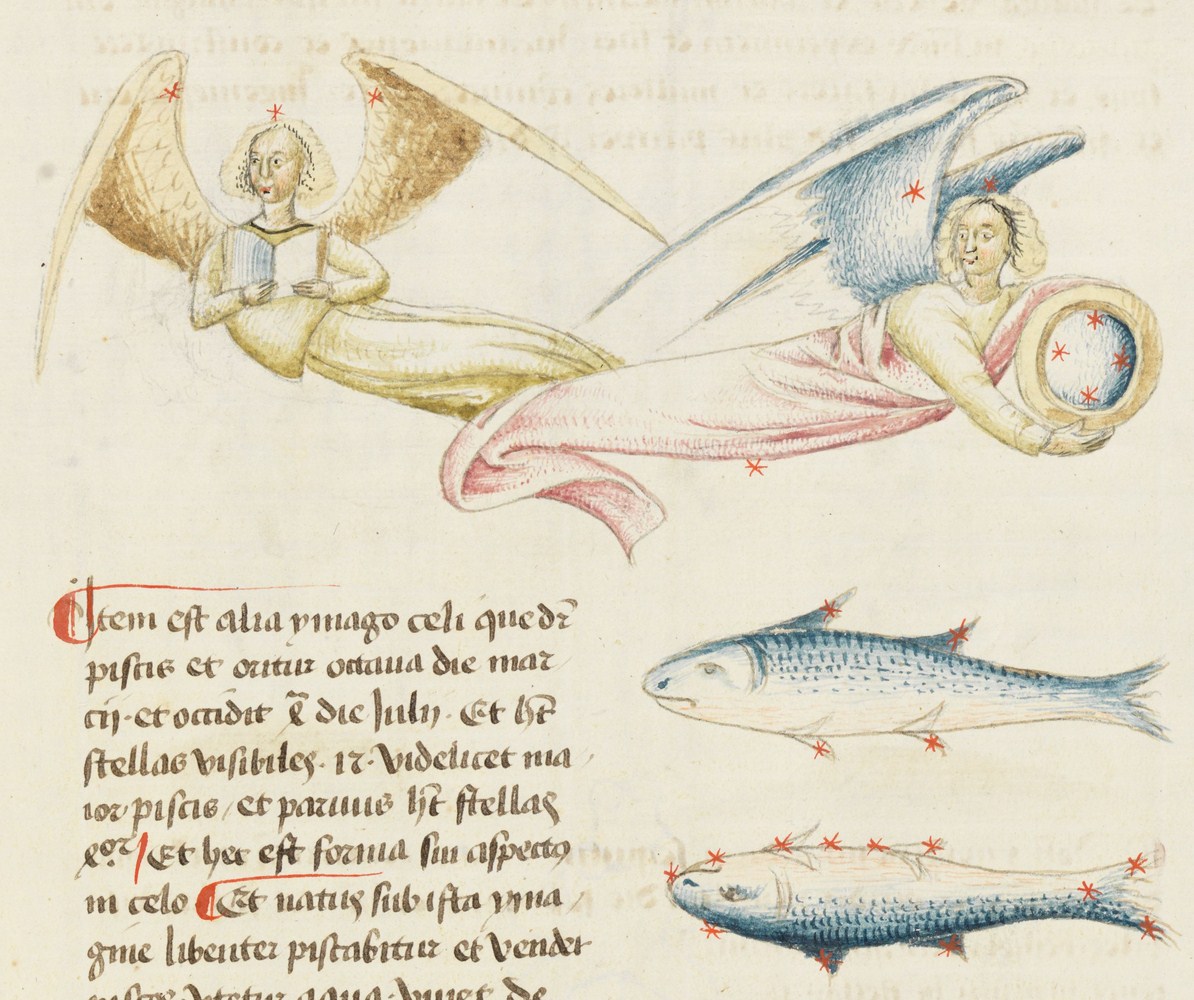 Item est alia ymago celi que dr̄
piscis et oritur octaua die mar
cij · et occidit x̄ die Julij · Et ht̄
stellas visibiles · 12 · Videlicet ma
ior piscis / et paruus ht̄ stellas
Et hec est forma sui aspectus
in celo Et natus sub ista yma
gine libenter piscabitur et vendet
pisces utetur aqua viuet de